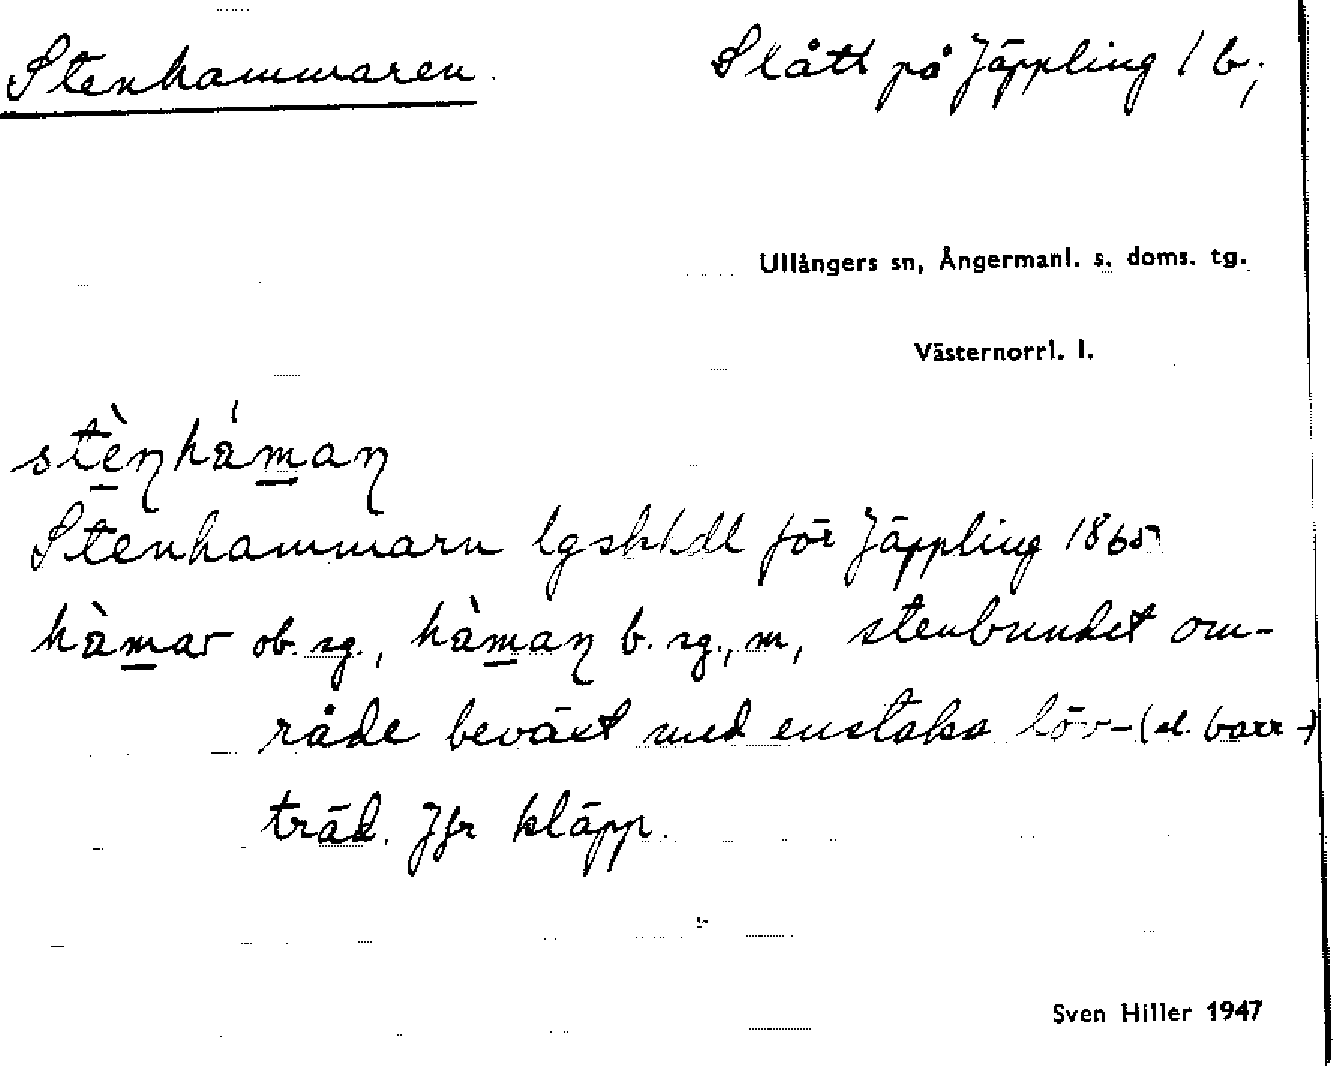 Stenhammaren. Slått på Jäppling 1 b;
Ullångers sn, Ångermanl. s. doms. tg.
Västernorrl. l.
stèn̥há̀man̥
Stenhammarn lgskhdl för Jäppling 1865
hàmar ob. sg., hàman̥ b. sg., m, stenbundet om-
råde beväxt med enstaka löv-(el. barr-)
träd. Jfr kläpp.
Sven Hiller 1947